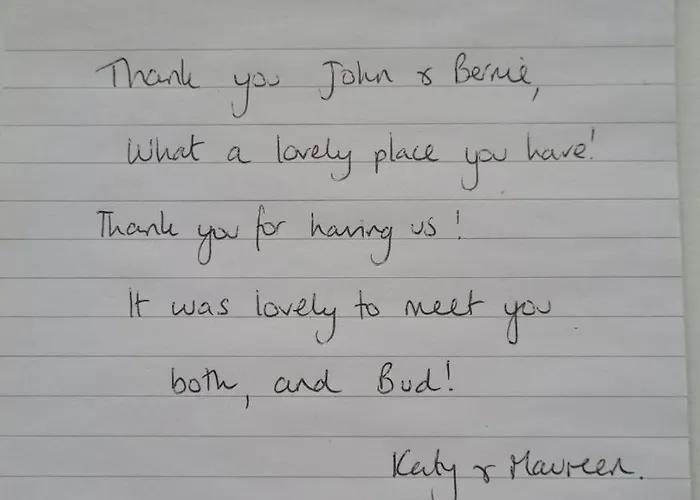 Thank you John & Bernie,
What a lovely place you have!
Thank you for having us!
It was lovely to meet you
both, and Bud!
Katy & Maureen.